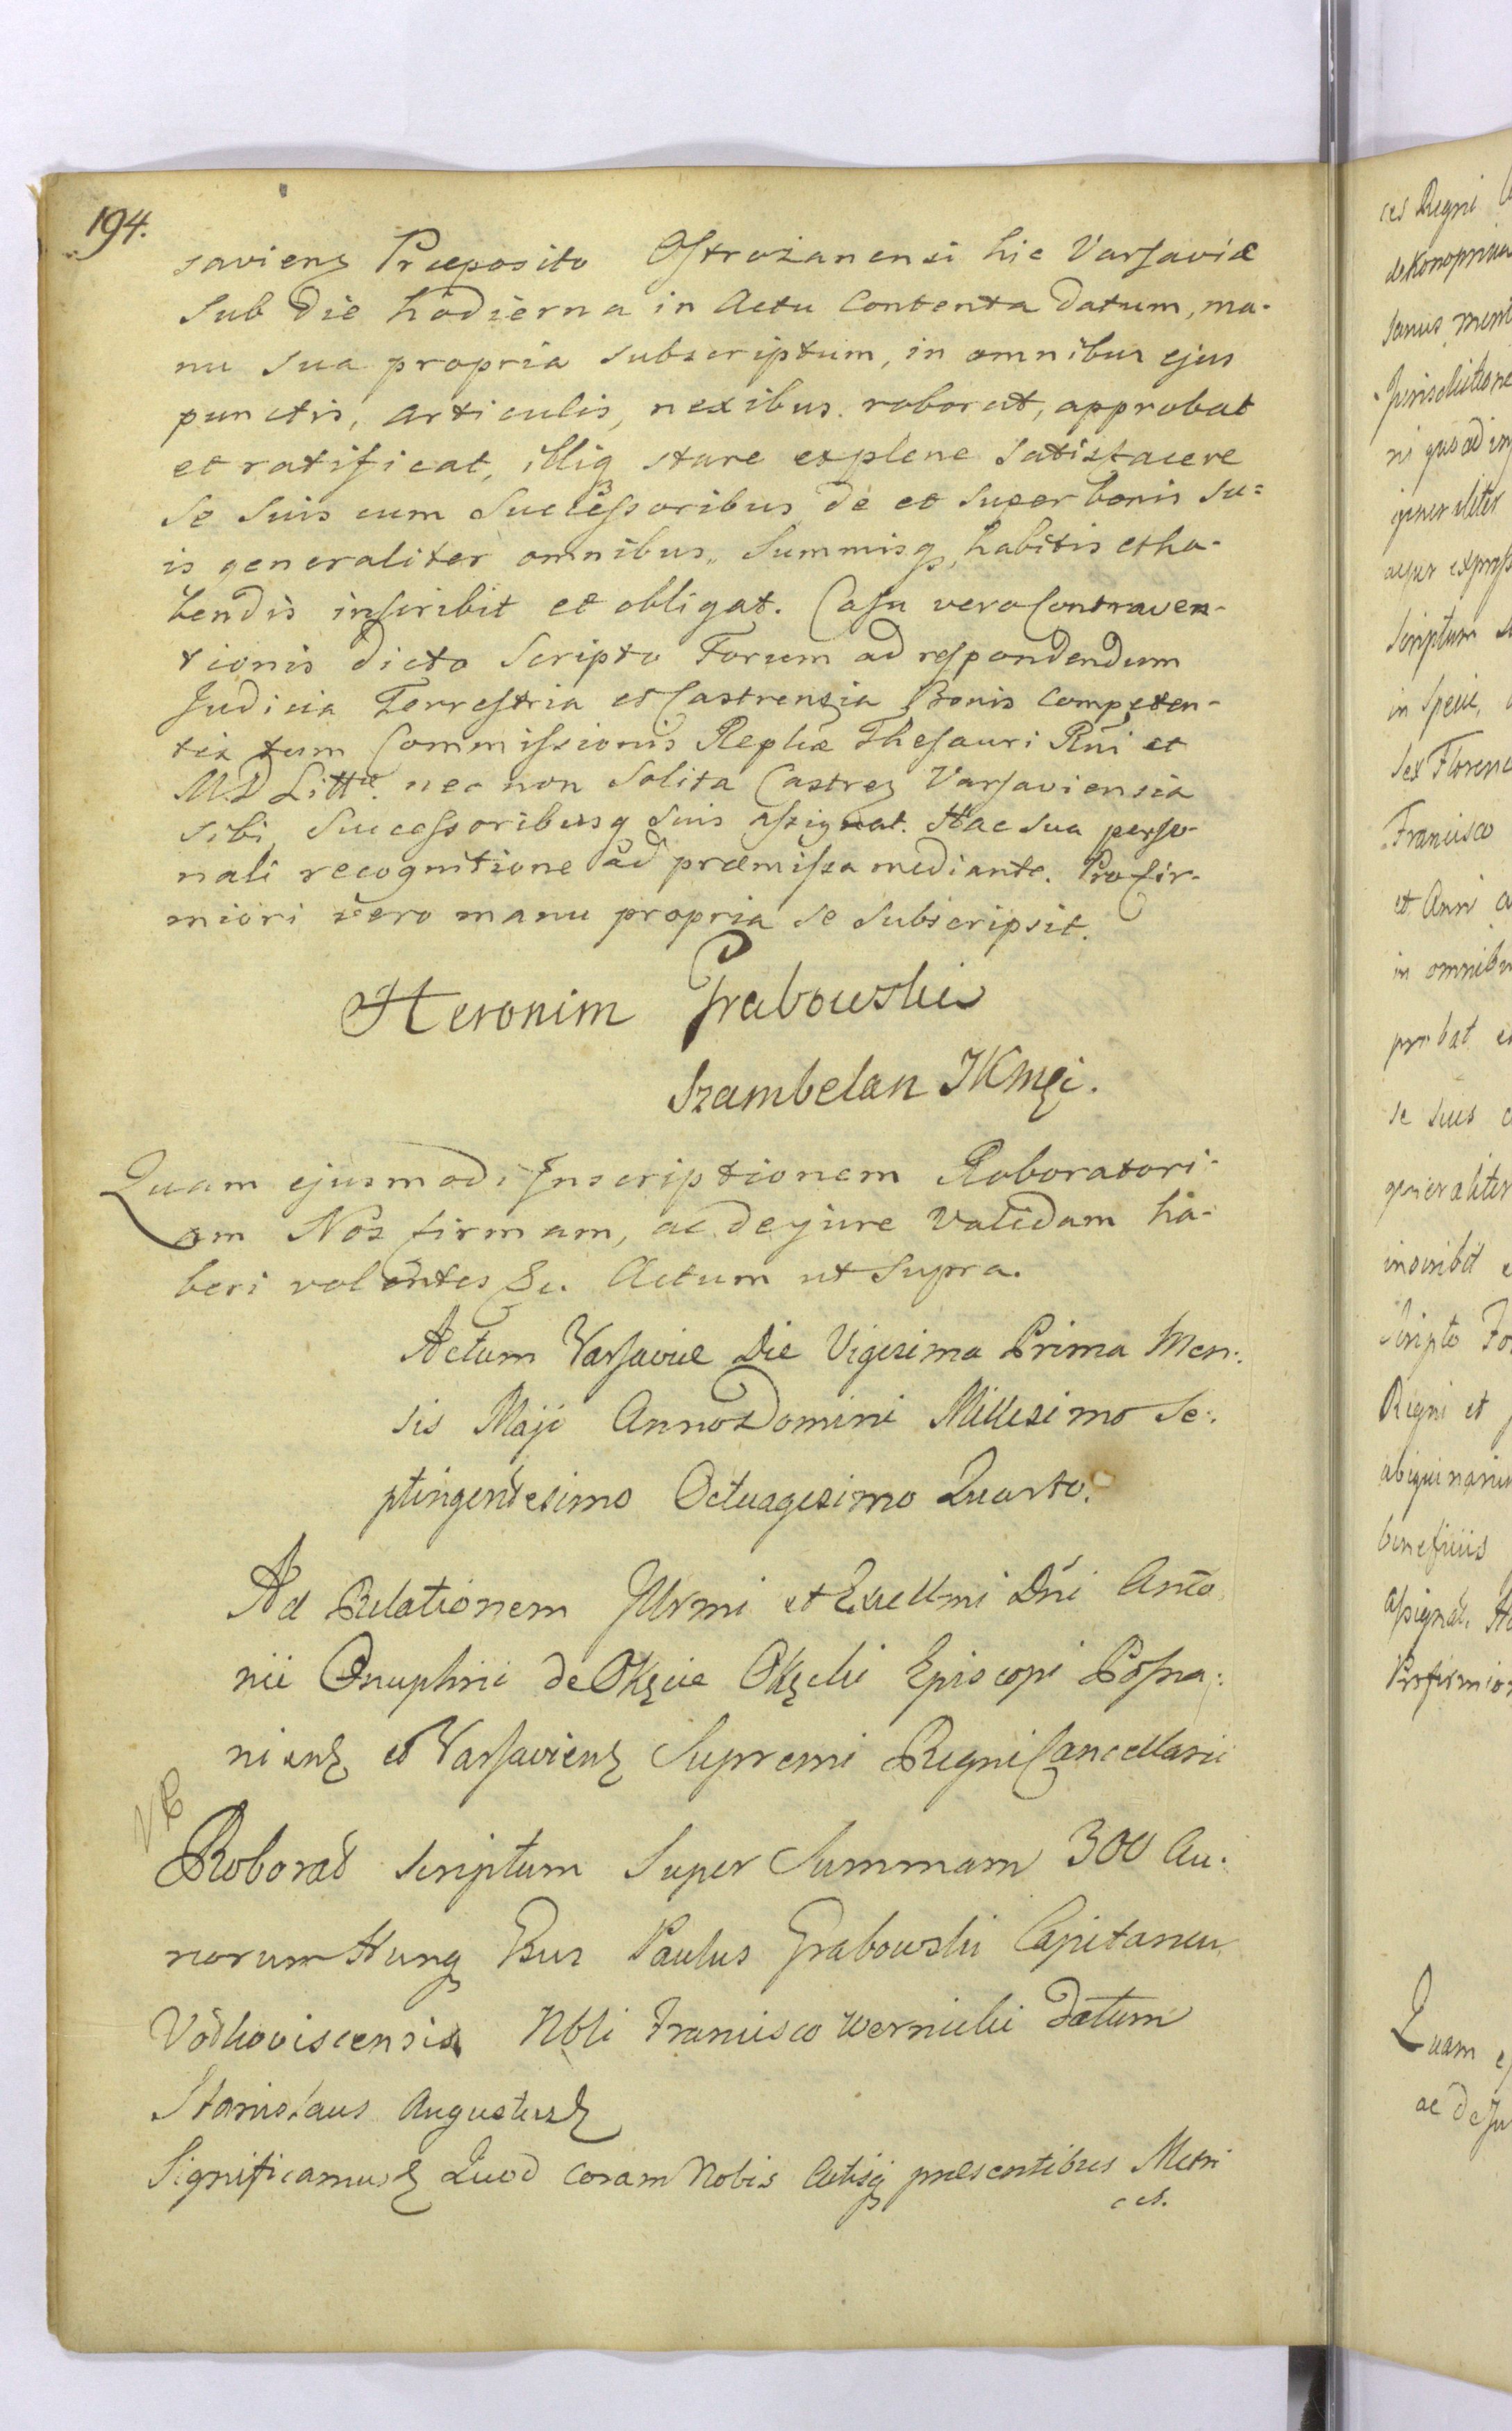 194.
saviens Præposito Ostrożanensi hic Varsaviæ
Sub Die hodierna in Actu Contenta Datum, ma-
nu sua propria subscriptum, in omnibus ejus
punctis, articulis, nexibus roborat, approbat
et ratificat, illiq stare et plene Satisfacere
Se Suis cum Successoribus de et Super bonis Su=
is generaliter omnibus, Summisq, habitis et ha-
bendis inscribit et obligat. Casu vero Contraven-
tionis dicto Scripto Forum ad respondendum
Judicia Terrestria et Castrensia Bonis Competen-
tia tum Commissionis Replicæ Thesauri Rni et
M.D. Littæ. nec non Solita Castres Varsaviensia
Sibi Successoribusq suis assignat. Hac Sua perso-
nali recognitione ad præmissa mediante. Pro fir-
miori vero manu propria se subscripsit.
Heronim Grabowski
Szambelan JKMści.
Quam ejusmodi Inscriptionem Roboratori-
am Nos firmam, ac de jure Validam ha-
beri volentes &c. Actum ut Supra.
Actum Varsaviæ Die Vigesima Prima Men:
sis Maji Anno Domini Millesimo Se:
ptingentesimo Octuagesimo Quarto.
Ad Relationem Illrmi et Excellmi Dni Anto
nii Onuphrii de Okęcie Okęcki Episcopi Posna:
niens et Varsaviens Supremi Regni Cancellarii
Roborat scriptum Super Summam 300 Au:
reorum Hung Paulus Grabowski Capitaneu
Volkoviscensis Nbli Francisco Wernicki Datum
Stanislaus Augustus &
Significamus & Quod coram Nobis Actisq præsentibus Metri
ces.
ces Regni
de Konoprni
Janus
ni quoad in
generaliter
Scriptum
in Specie,
Sex Floreno
Francisco
et Anni a
in omnibu
probat e
se suis c
generaliter
inscribit e
Scripto Fo
Regni et
beneficiis
assignat. Ha
Pro firmior
Quam ej
ac de Ju